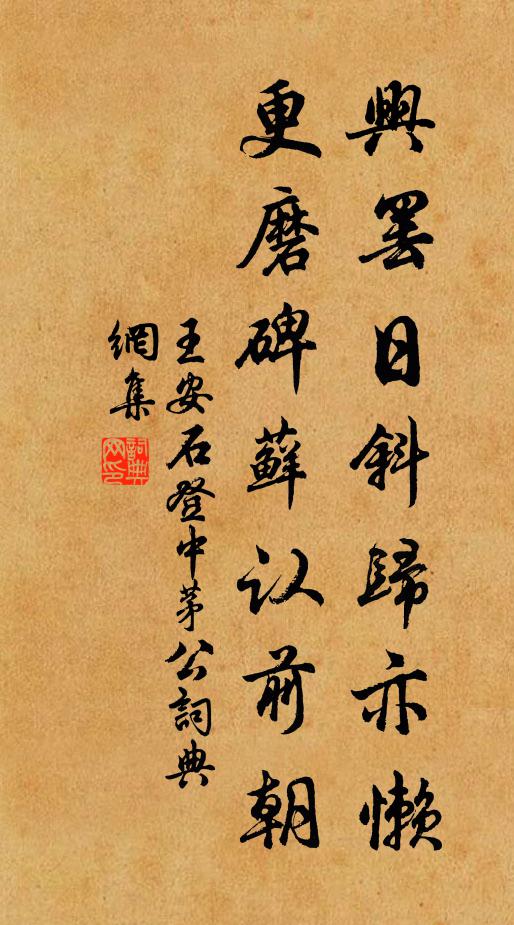 興罷日斜歸亦懶
更磨碑蘚认前朝
王安石登中茅公詞典
網集
詞典网印